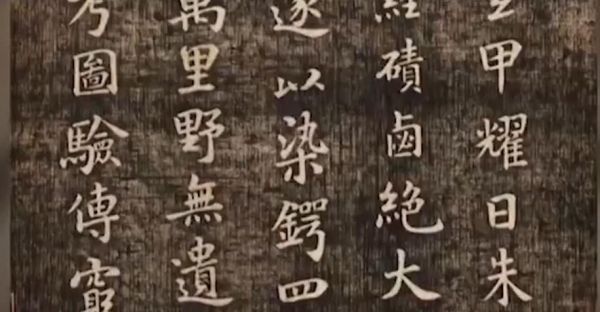 玄甲耀日朱
經磧鹵絶大
逐以染鍔四
萬里野無遺
考圖驗傳窮